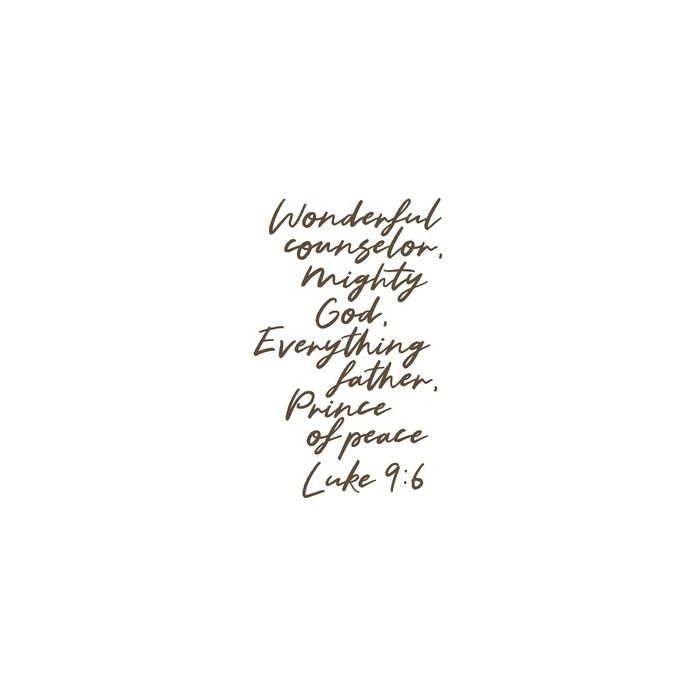 Wonderful
counselor,
Mighty
God,
Everything
father,
Prince
of peace
Luke 9:6